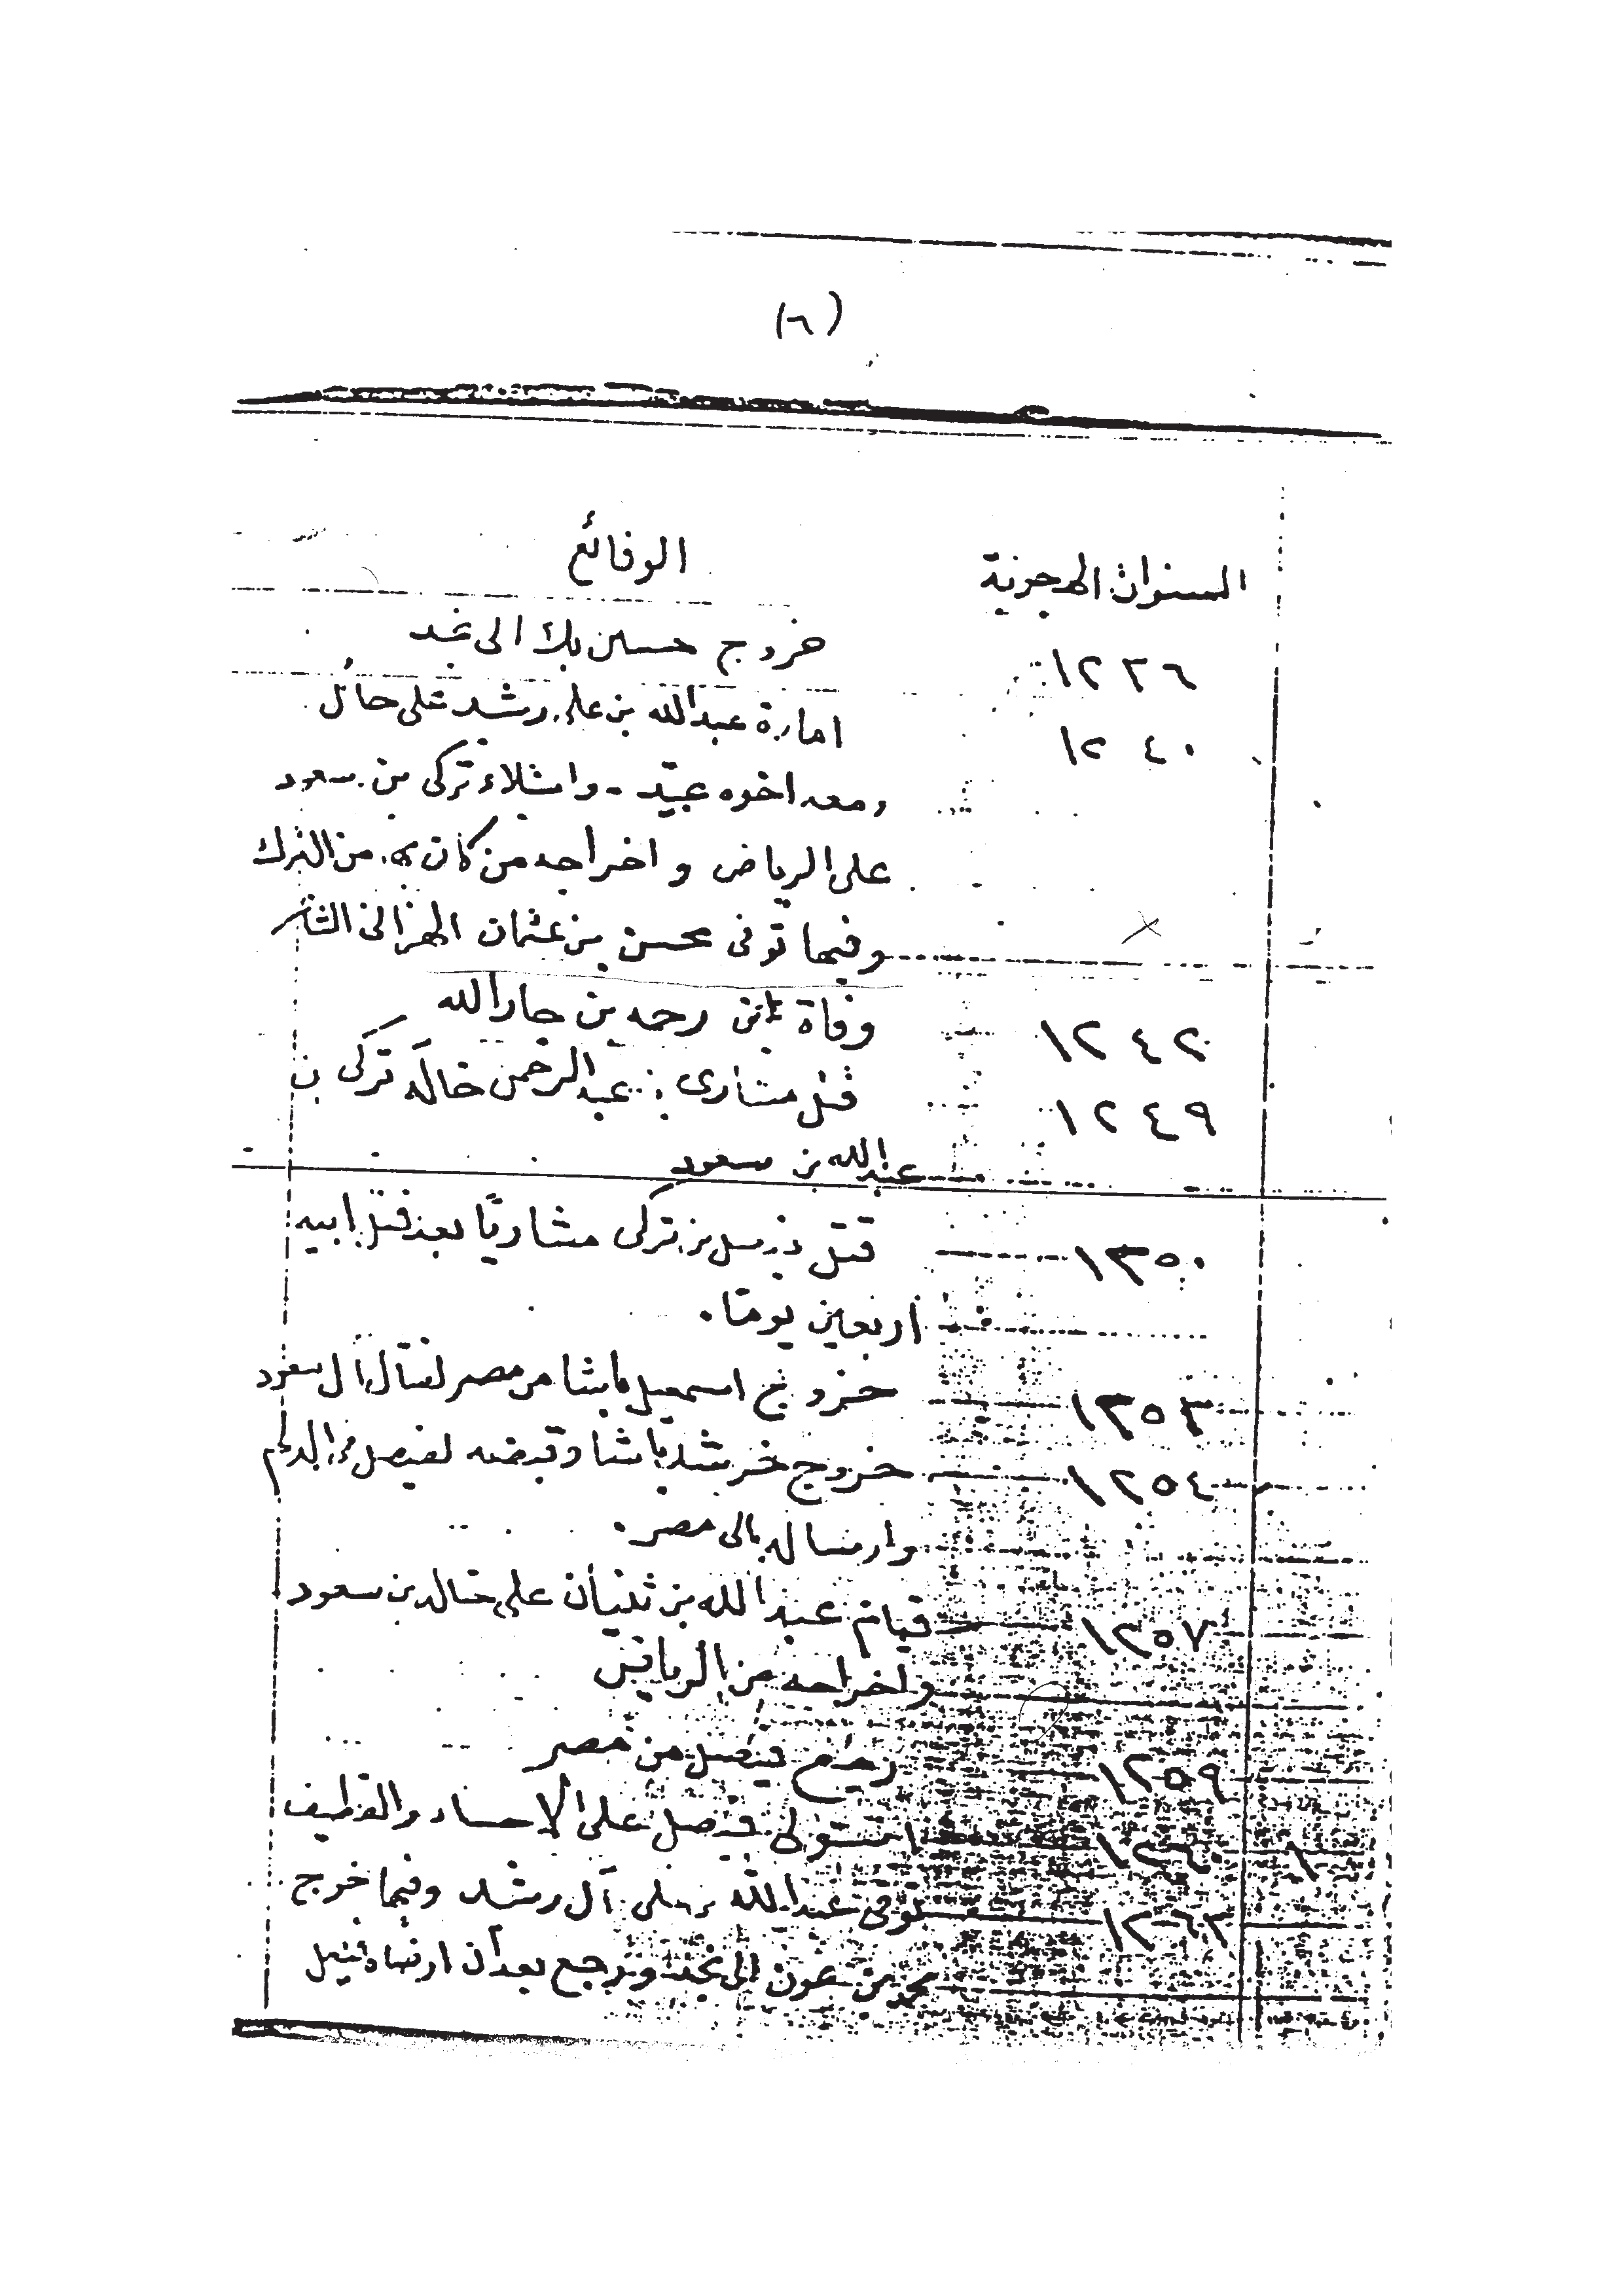 (٦)
السنوات الهجرية الوقائع
١٢٣٦ خروج حسين بك الى نجد
١٢٤٠ امارة عبدالله بن علي رشيد على حائل
ومعه اخوه عبيّد - وامتيلاء تركي بن سعود
على الرياض واخراجه من كان به من الترك
وفيها توفى محسن بن عثمان الهزالى الشاعر
١٢٤٢ وفاة رحمه بن جارالله
١٢٤٩ قتل مشارى بن عبدالرحمن خاله تركى بن
عبدالله بن سعود
١٣٥٠ قتل فيصل بن تركى مشاريًا بعد قتل ابيه
اربعين يومًا.
١٣٥٣ خروج اسمعيل باشا من مصر لقتال آل سعود
١٢٥٤ خروج خرشد باشا وقبضه لفيصل فى الدلم
وارساله الى مصر.
١٢٥٧ قيام عبدالله بن ثنيان على خالد بن سعود
واخراجه من الرياض
١٢٥٩ رجوع فيصل من مصر
١٢٦٠ استولى فيصل على الاحساء والقطيف
١٢٦٣ توفى عبدالله بن على آل رشيد وفيها خرج
محمد بن عون الى نجد ورجع بعد أن ارضاه فيصل